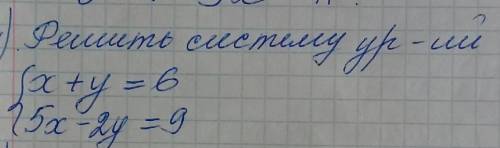 ). Решить систему ур-ий
{x + y = 6
5x - 2y = 9